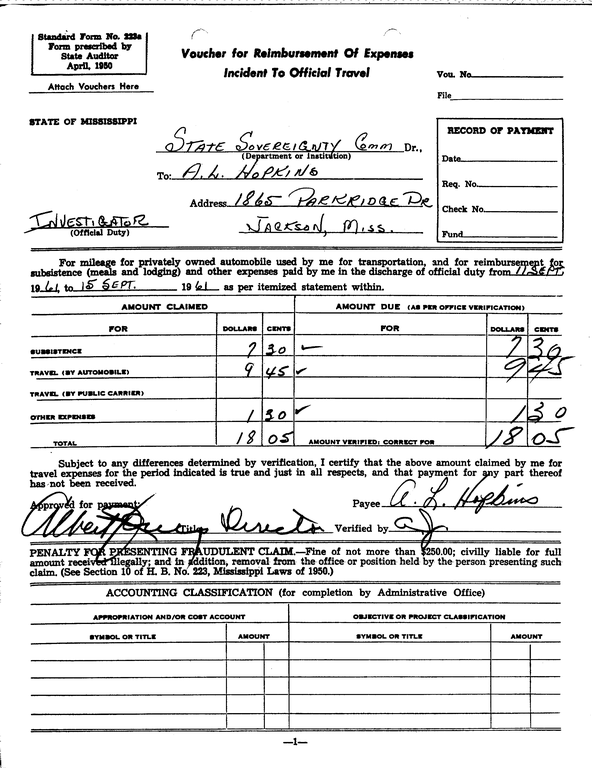 Standard Form No. 223a
Form prescribed by
State Auditor
April, 1950
Attach Vouchers Here
Voucher for Reimbursement Of Expenses
Incident To Official Travel
Vou. No.
File
STATE OF MISSISSIPPI
STATE SOVEREIGNTY COMM Dr.,
(Department or Institution)
To: A. L. HOPKINS
Address 1865 PARKRIDGE DR
INVESTIGATOR JACKSON, MISS.
(Official Duty)
RECORD OF PAYMENT
Date
Req. No.
Check No.
Fund
For mileage for privately owned automobile used by me for transportation, and for reimbursement for
subsistence (meals and lodging) and other expenses paid by me in the discharge of official duty from 11 SEPT.
1961, to 15 SEPT. 1961 as per itemized statement within.
AMOUNT CLAIMED AMOUNT DUE (AS PER OFFICE VERIFICATION)
FOR DOLLARS CENTS FOR DOLLARS CENTS
SUBSISTENCE 7 30 7 30
TRAVEL (BY AUTOMOBILE) 9 45 9 45
TRAVEL (BY PUBLIC CARRIER)
OTHER EXPENSES 1 30 1 30
TOTAL 18 05 AMOUNT VERIFIED: CORRECT FOR 18 05
Subject to any differences determined by verification, I certify that the above amount claimed by me for
travel expenses for the period indicated is true and just in all respects, and that payment for any part thereof
has not been received.
Approved for payment: Payee A. L. Hopkins
Albert Title Director Verified by
PENALTY FOR PRESENTING FRAUDULENT CLAIM.—Fine of not more than $250.00; civilly liable for full
amount received illegally; and in addition, removal from the office or position held by the person presenting such
claim. (See Section 10 of H. B. No. 223, Mississippi Laws of 1950.)
ACCOUNTING CLASSIFICATION (for completion by Administrative Office)
APPROPRIATION AND/OR COST ACCOUNT OBJECTIVE OR PROJECT CLASSIFICATION
SYMBOL OR TITLE AMOUNT SYMBOL OR TITLE AMOUNT
—1—